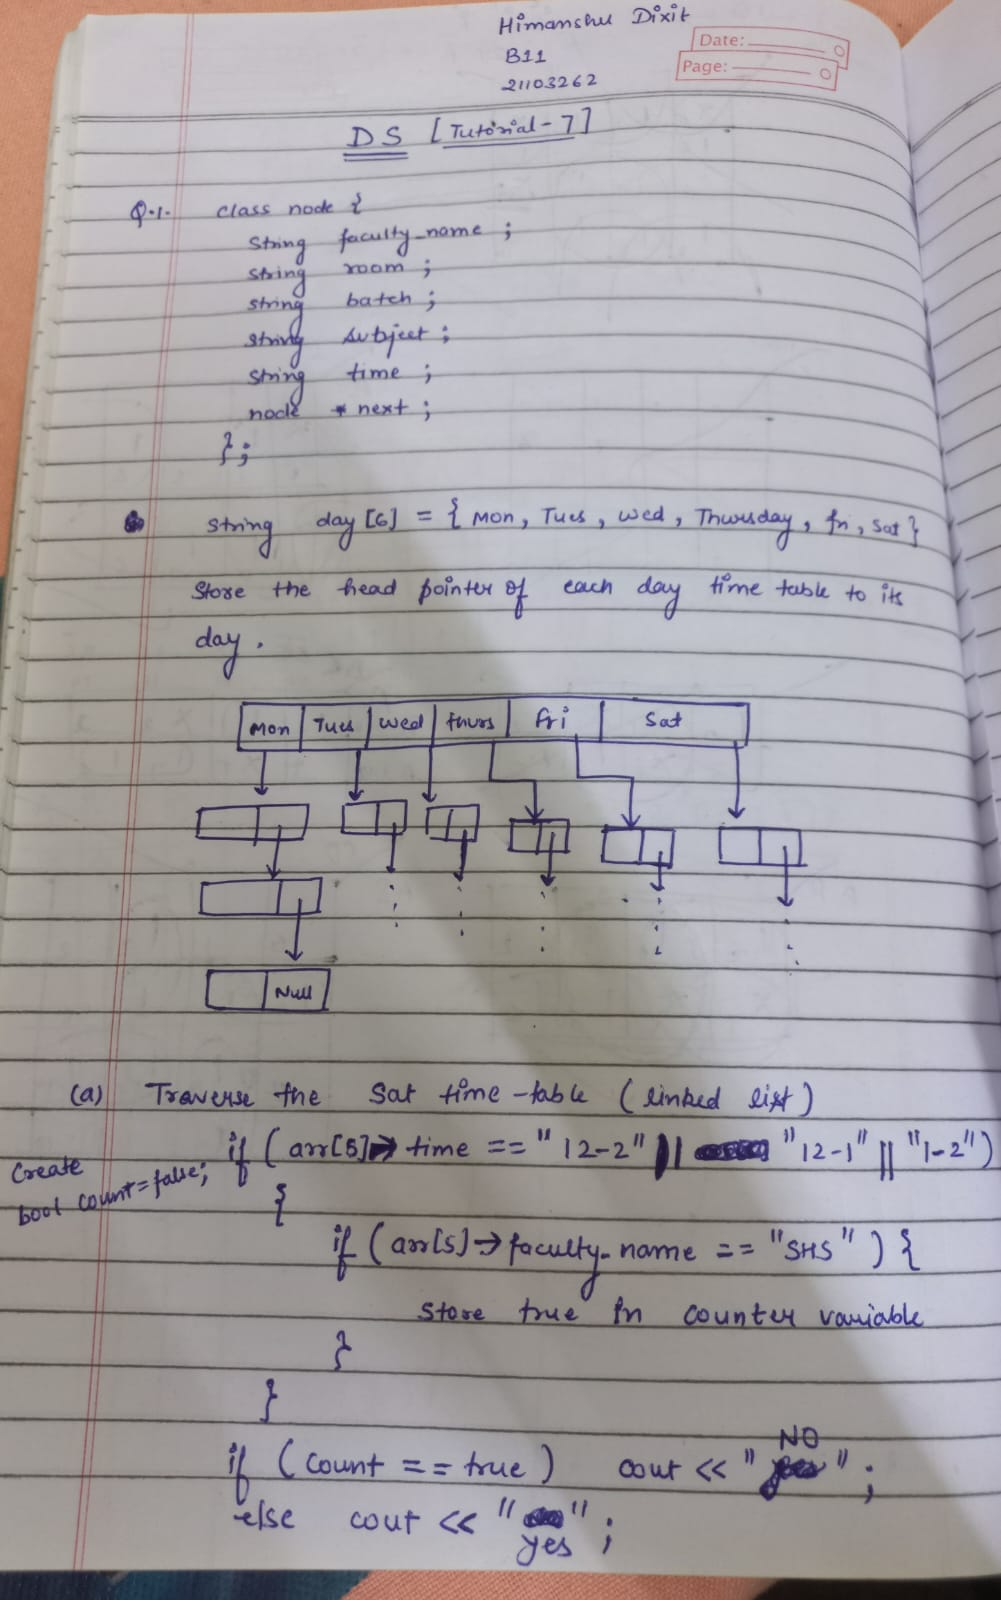 Himanshu Dixit
B11
21103262
Date:
Page:
DS [Tutorial-7]
Q.1. class node {
String faculty_name ;
string room ;
string batch ;
string subject ;
string time ;
node * next ;
};
string day [6] = { Mon, Tues, wed, Thursday, fri, sat }
Store the head pointer of each day time table to its
day.
Mon Tues wed thurs fri Sat
Null
(a) Traverse the Sat time-table (linked list)
Create
bool count=false;
if ( arr[5]→ time == "12-2" || "12-1" || "1-2")
{
if ( arr[5]→ faculty_name == "SHS" ) {
Store true in counter variable
}
}
if ( count == true ) cout << " NO " ;
else cout << " yes " ;